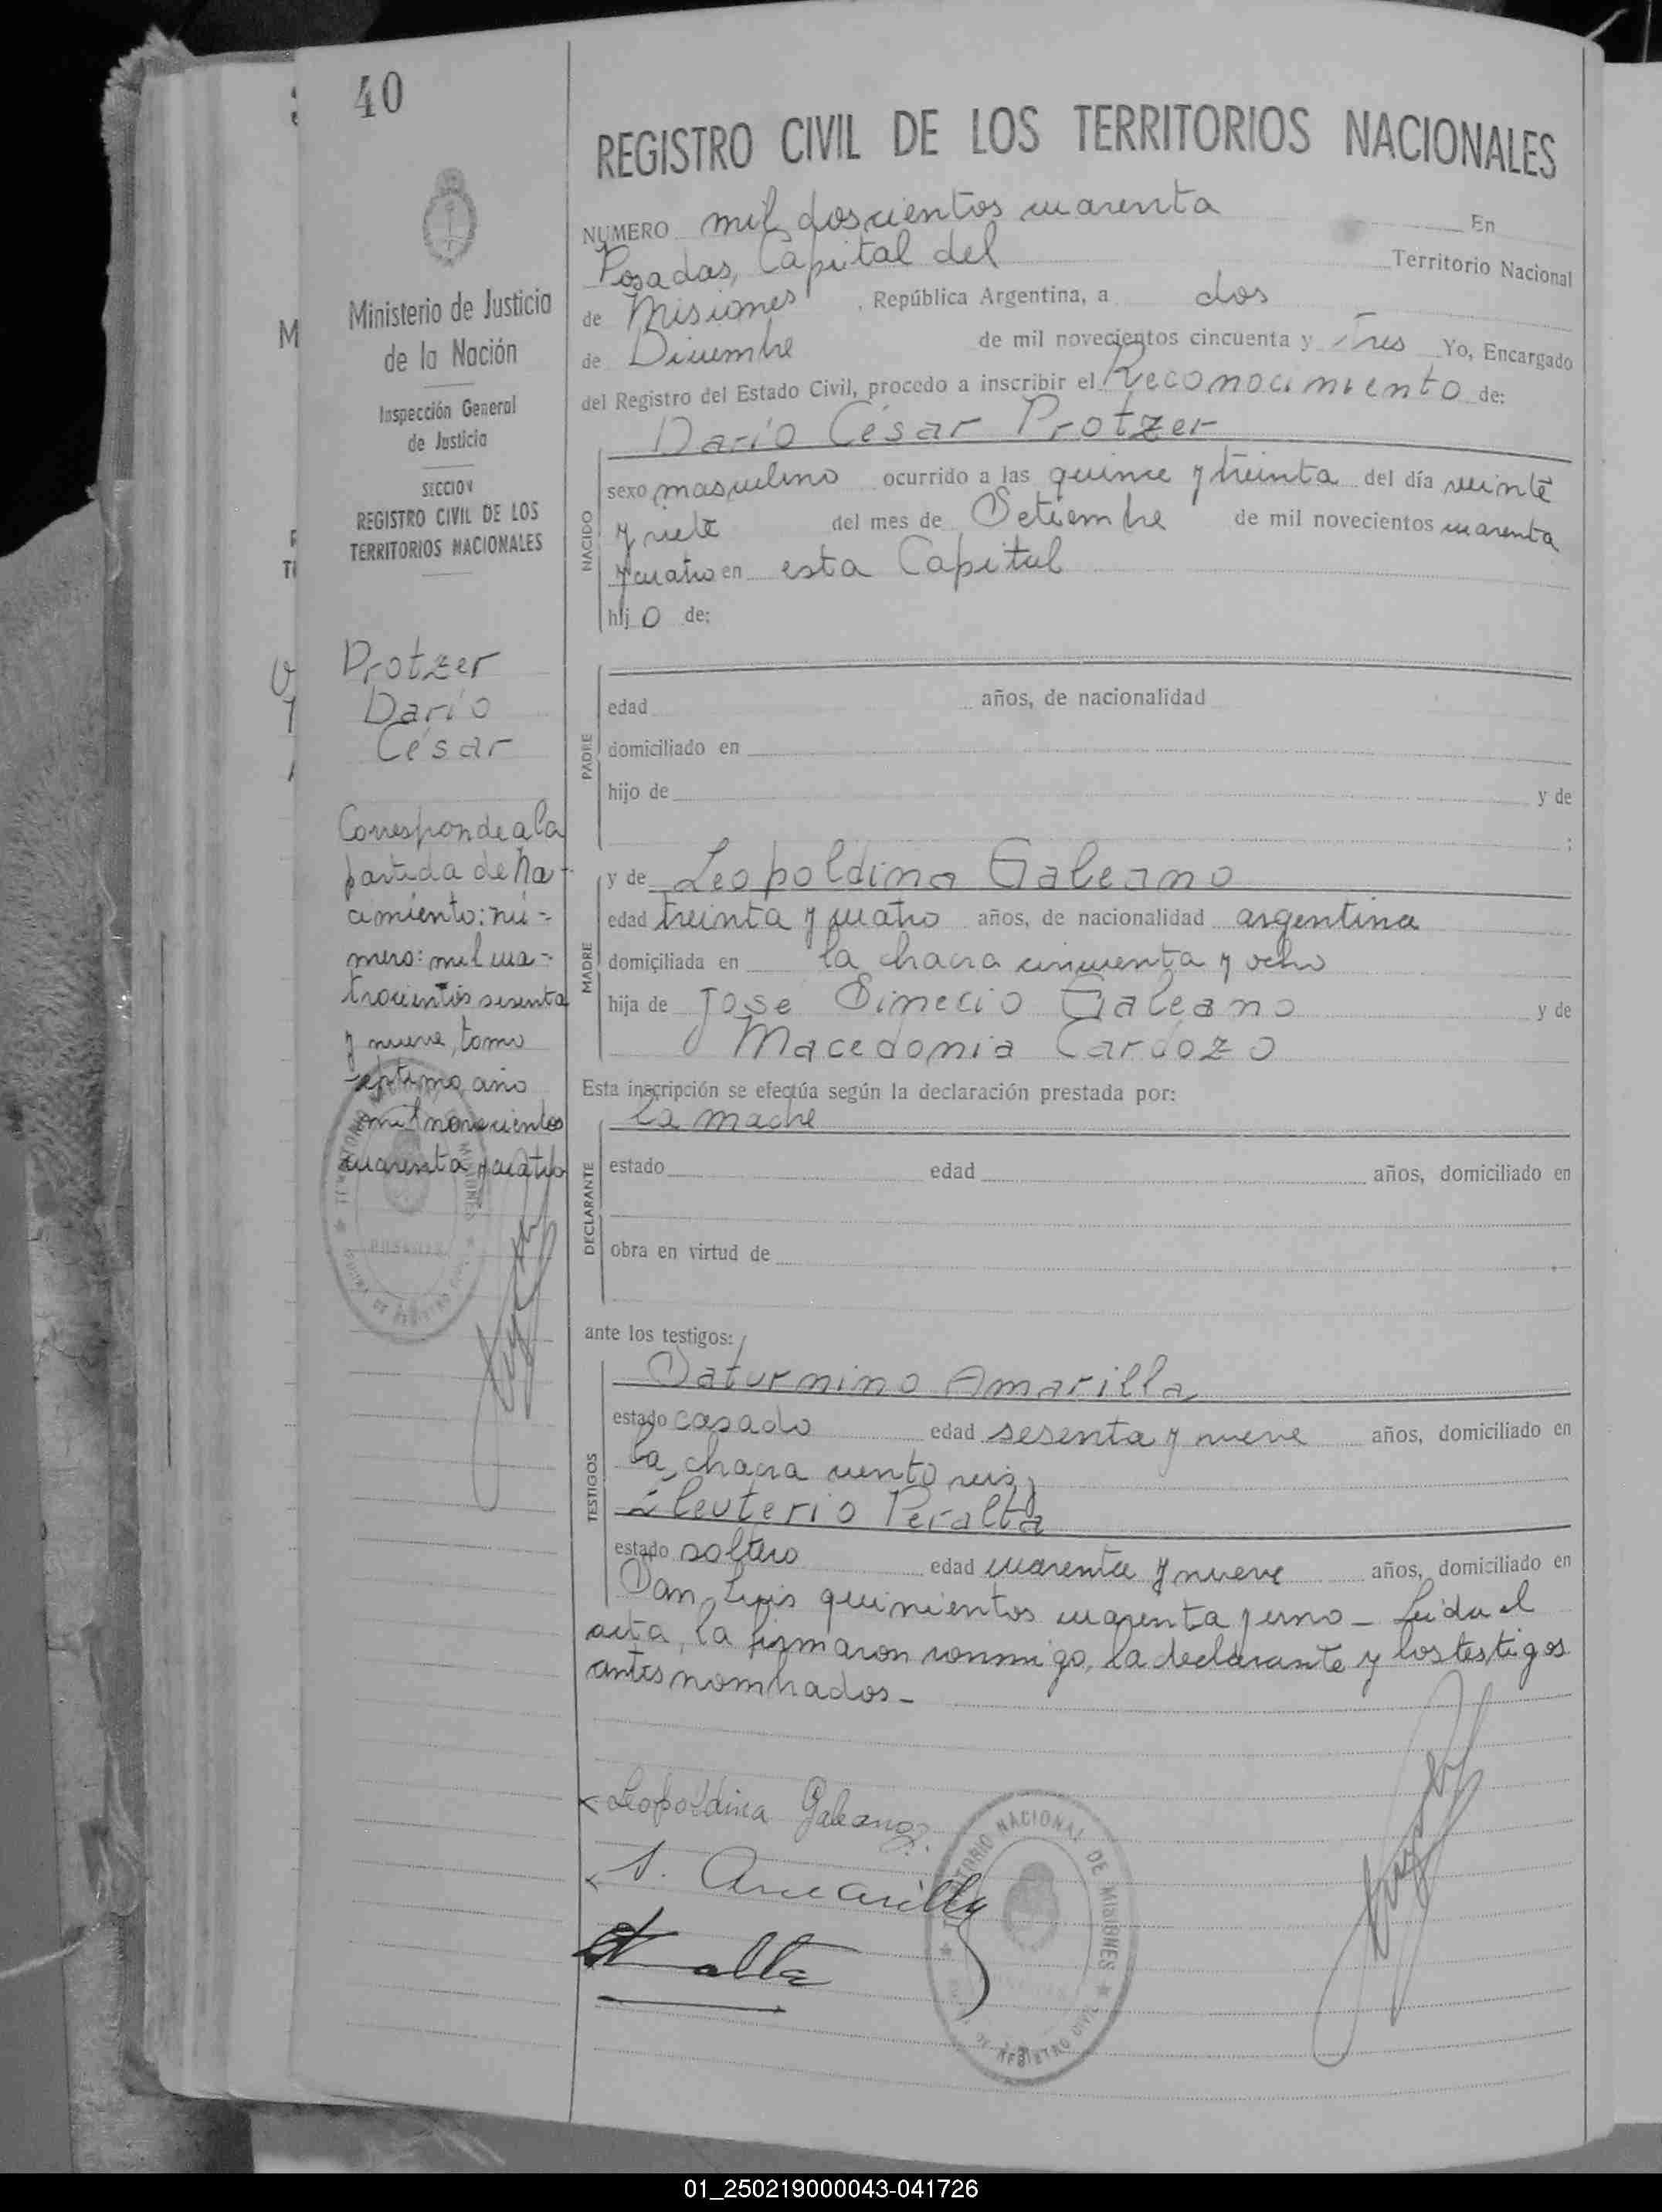 40
REGISTRO CIVIL DE LOS TERRITORIOS NACIONALES
Ministerio de Justicia
de la Nación
Inspección General
de Justicia
SECCION
REGISTRO CIVIL DE LOS
TERRITORIOS NACIONALES
NUMERO mil doscientos cuarenta En
Posadas, Capital del Territorio Nacional
de Misiones, República Argentina, a dos
de Diciembre de mil novecientos cincuenta y Tres Yo, Encargado
del Registro del Estado Civil, procedo a inscribir el Reconocimiento de:
Darío César Protzer
NACIDO
sexo masculino ocurrido a las quince y treinta del día veinte
y siete del mes de Setiembre de mil novecientos cuarenta
y cuatro en esta Capital
hij o de:
Protzer
Darío
César
PADRE
edad años, de nacionalidad
domiciliado en
hijo de y de
;
Corresponde a la
partida de Na-
cimiento: nú-
mero: mil cua-
trocientos sesenta
y nueve, tomo
septimo, año
mil novecientos
cuarenta y cuatro
MADRE
y de Leopoldina Galeano
edad treinta y cuatro años, de nacionalidad argentina
domiciliada en la chacra cincuenta y ocho
hija de José Galeano y de
Macedonia Cardozo
Esta inscripción se efectúa según la declaración prestada por:
la madre
DECLARANTE
estado edad años, domiciliado en
obra en virtud de
ante los testigos:
TESTIGOS
Saturnino Amarilla
estado casado edad sesenta y nueve años, domiciliado en
la chacra ciento seis y
Eleuterio Peralta
estado soltero edad cuarenta y nueve años, domiciliado en
San Luis quinientos cuarenta y uno - Leída el
acta, la firmaron conmigo, la declarante y los testigos
antes nombrados -
Leopoldina Galeano
S. Amarilla
TERRITORIO NACIONAL DE MISIONES
DE REGISTRO CIVIL
01_250219000043-041726